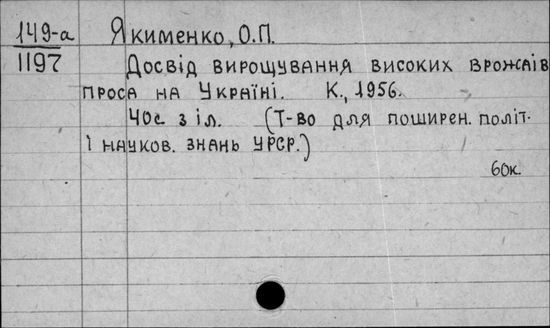 149-а Якименко, О.П.
1197 Досвід вирощування високих врожаїв
проса на Україні. К., 1956.
40с. з іл. (Т-во для поширен. політ.
і науков. знань УРСР.)
60к.